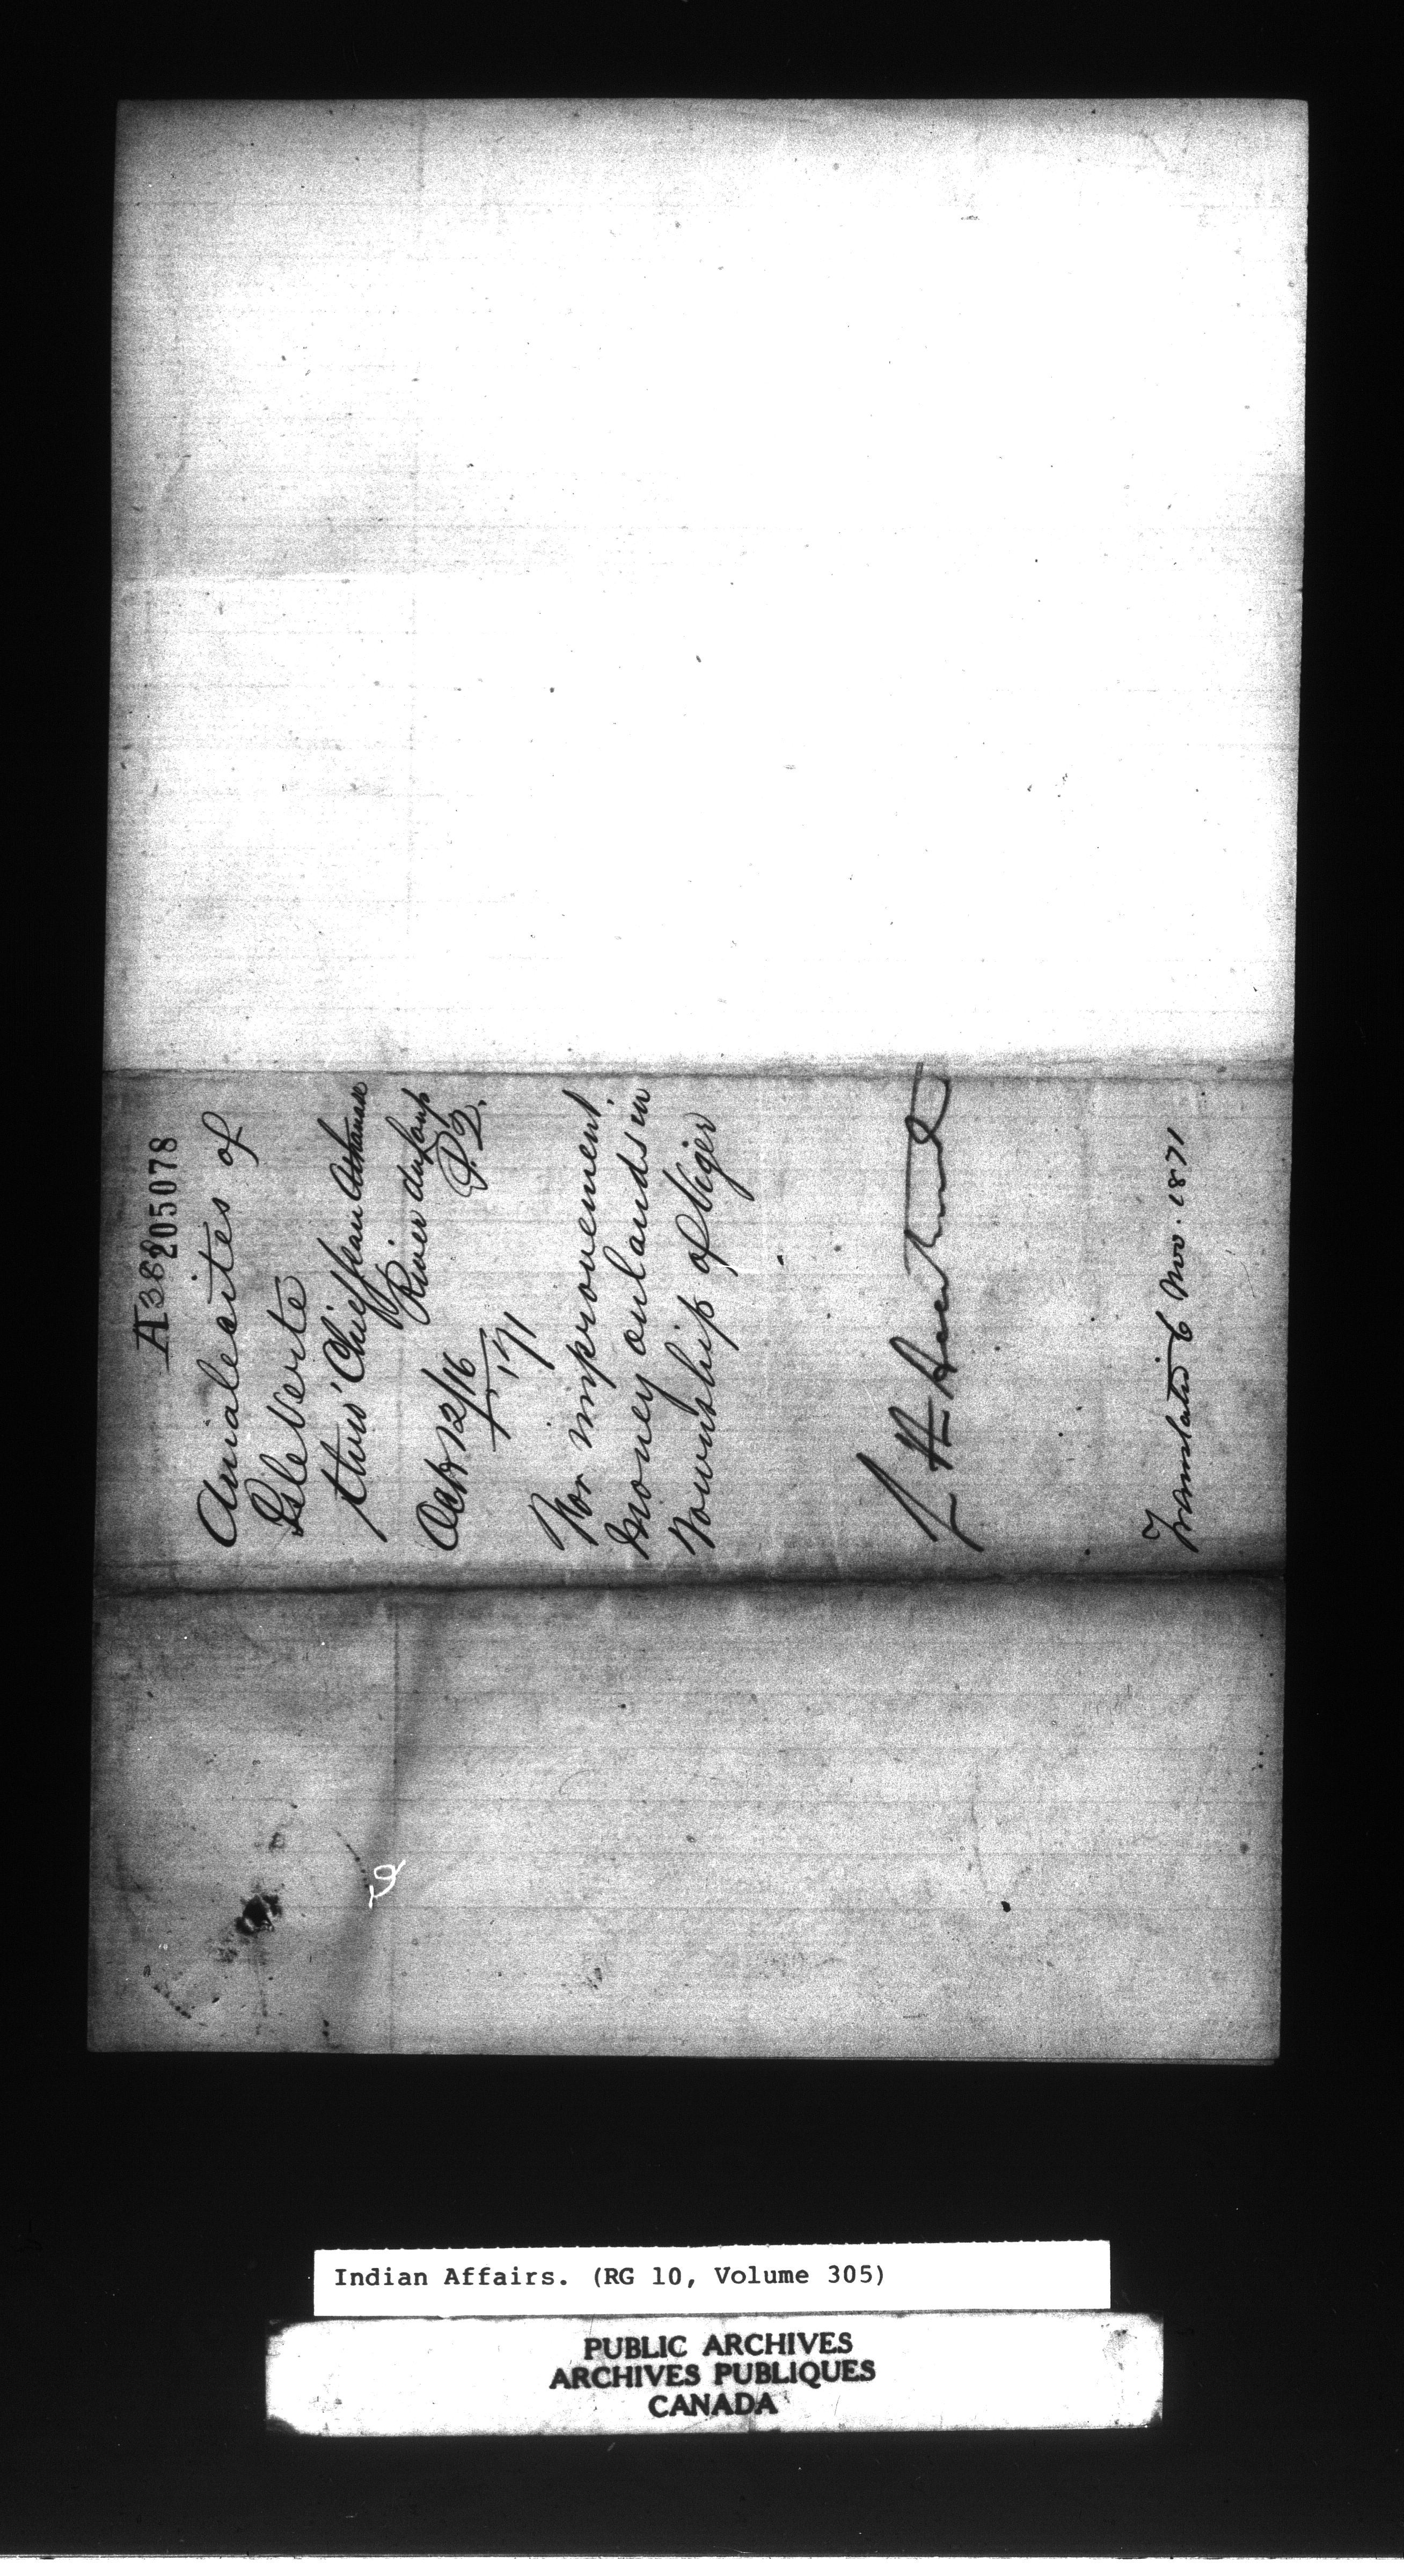 A 388
205078
Amalecites of
Isle Verte
thro' Chief Jean Athanase
River du Loup
P.Q.
Oct 12/16
1871
For improvement
money on lands in
Township of Viger
Translated 6 Nov. 1871
Indian Affairs. (RG 10, Volume 305)
PUBLIC ARCHIVES
ARCHIVES PUBLIQUES
CANADA